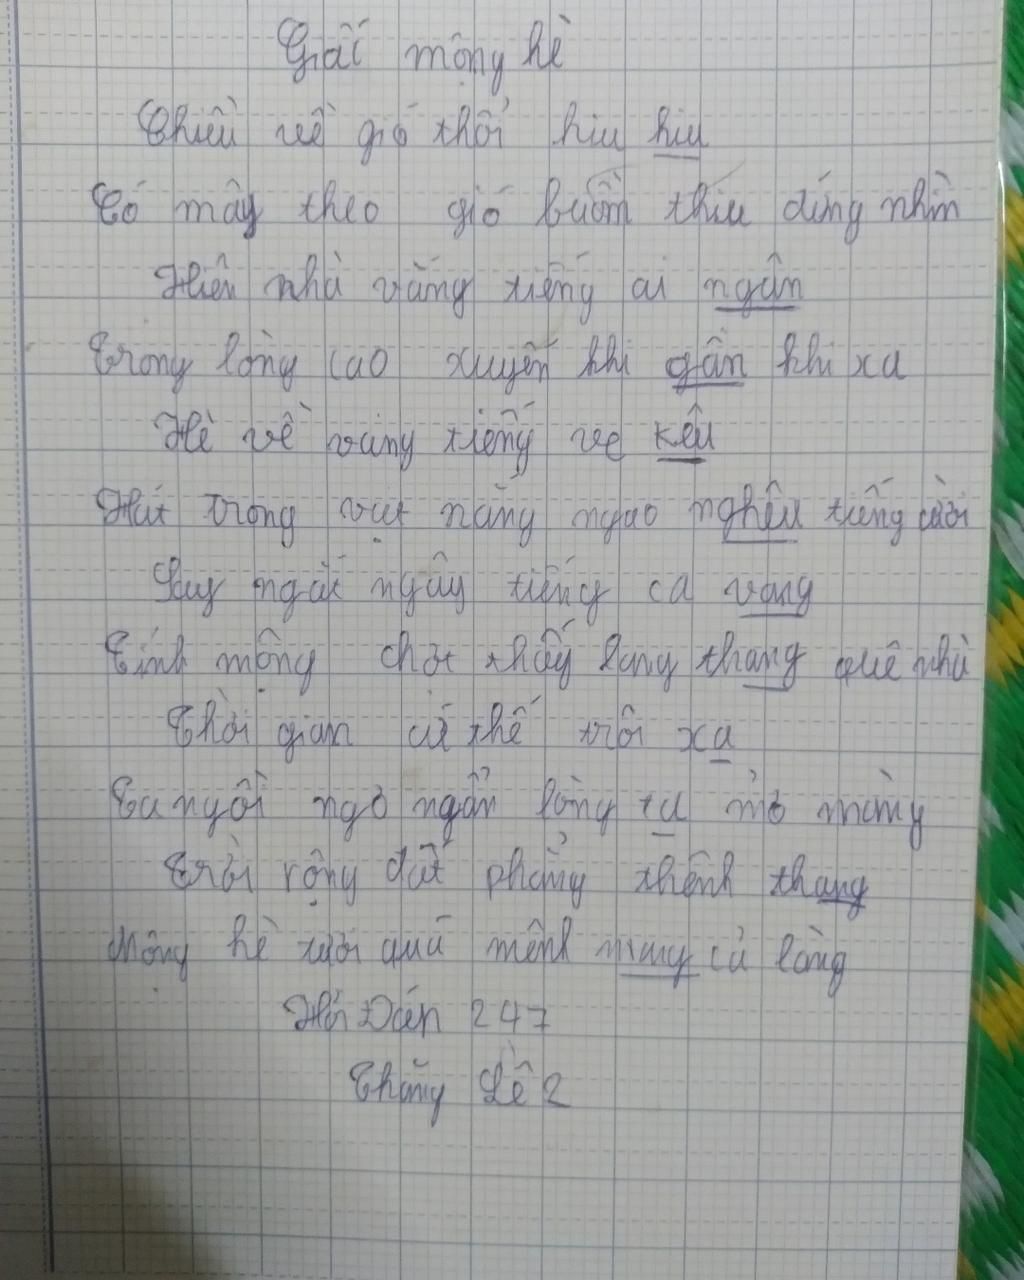 Giấc mộng hè
Chiều về gió thổi hiu hiu
Có mây theo gió buồn thiu đứng nhìn
Hiên nhà vắng tiếng ai ngân
Trong lòng cao xuyến khi gần khi xa
Hè về vang tiếng ve kêu
Hát trong vạt nắng ngao nghêu tiếng cười
Say ngất ngây tiếng ca vang
Tỉnh mộng chợt thấy lang thang quê nhà
Thời gian cứ thế trôi xa
Ta ngồi ngơ ngẩn lòng ta mơ màng
Trời rộng đất phẳng thênh thang
Mộng hè tươi quá mênh mang cả lòng
Hỏi Đáp 247
Thắng Lê 2